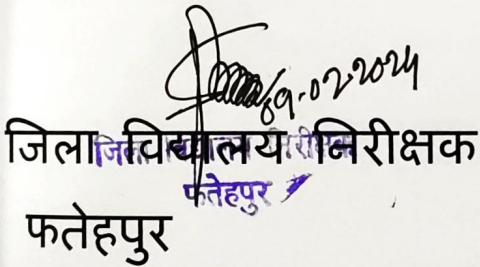 09-02-2024
जिला विद्यालय निरीक्षक
जिला विद्यालय निरीक्षक
फतेहपुर
फतेहपुर